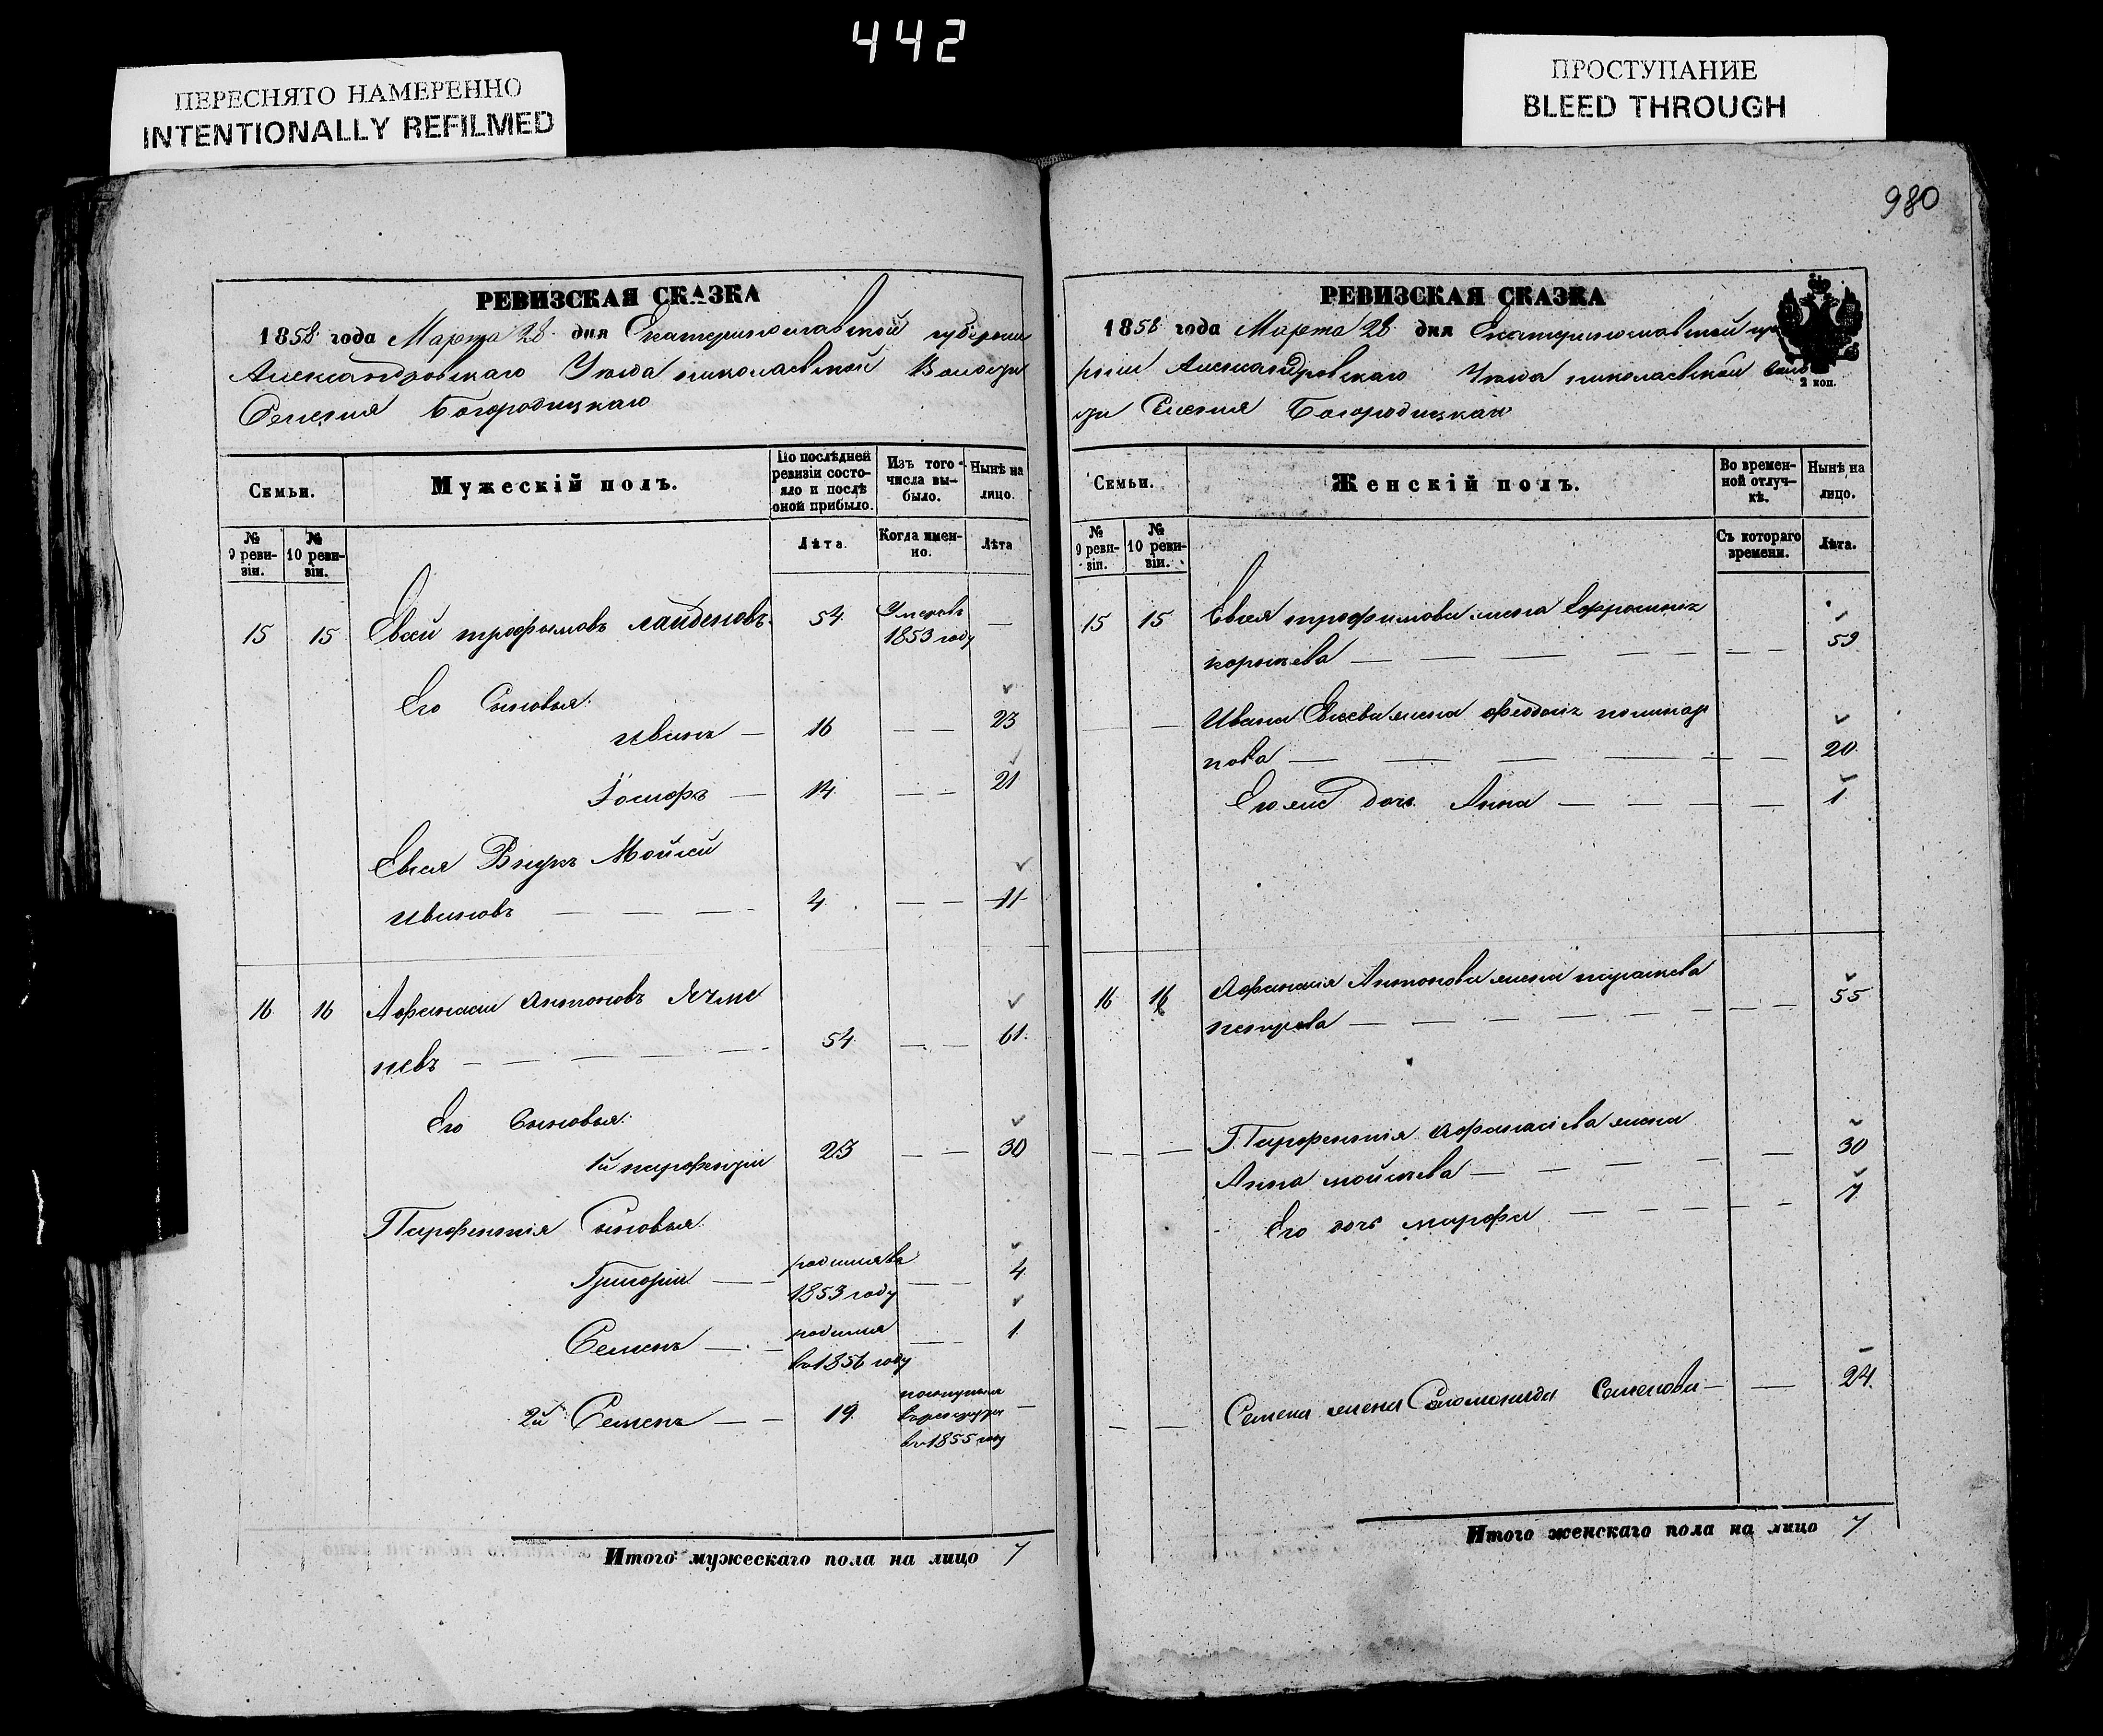 442
ПЕРЕСНЯТО НАМЕРЕННО
INTENTIONALLY REFILMED
ПРОСТУПАНИЕ
BLEED THROUGH
980
РЕВИЗСКАЯ СКАЗКА
1858 года Марта 28 дня Екатеринославской губернии
Александровскаго Уезда николаевской Волости
Селения Богородицкаго
Семьи.
Мужескій полъ.
По послѣдней ревизіи состояло и послѣ оной прибыло.
Изъ того числа выбыло.
Нынѣ на лицо.
№ 9 ревизіи.
№ 10 ревизіи.
Лѣта.
Когда именно.
Лѣта
15 15 Евсей трофымовъ 54 Умеръ въ 1853 году —
Его Сыновья:
иванъ — 16 — — 23
14 — — 21
Евсея Внукъ Мойсей
ивановъ — — — 4 — — 11
16 16 Афанасии антоновъ Ячме
невъ — — — — 54 — — 61
Его Сыновья:
1й парфентии 23 — — 30
Парфентия Сыновья
Григории — — родился въ 1853 году — — 4
Семенъ — — родился въ 1856 году — — 1
2й Семенъ — — 19 поступилъ в рекруты в 1855 году —
Итого мужескаго пола на лицо 7
РЕВИЗСКАЯ СКАЗКА
1858 года Марта 28 дня Екатеринославской губе
рнии Александровскаго Уезда николаевской Воло
сти Селения Богородицкаго
2 коп.
Семьи.
Женскій полъ.
Во временной отлучкѣ.
Нынѣ на лицо.
№ 9 ревизіи.
№ 10 ревизіи.
Съ котораго времени.
Лѣта.
15 15 Евсея трофимова жена Ефросиния
— — — — — — 59
— Ивана Евсеева жена феодосия
— — — — — — 20
Его же дочь Анна — — — — 1
16 16 Афанасия Антонова жена
петрова — — — — — — — 55
— — — Парфентия афанасіева жена
Анна мойсеева — — — — — 30
Его дочь марфа — — — — — 7
— — Семена жена Соломонида Семенова — — 24
Итого женскаго пола на лицо 7